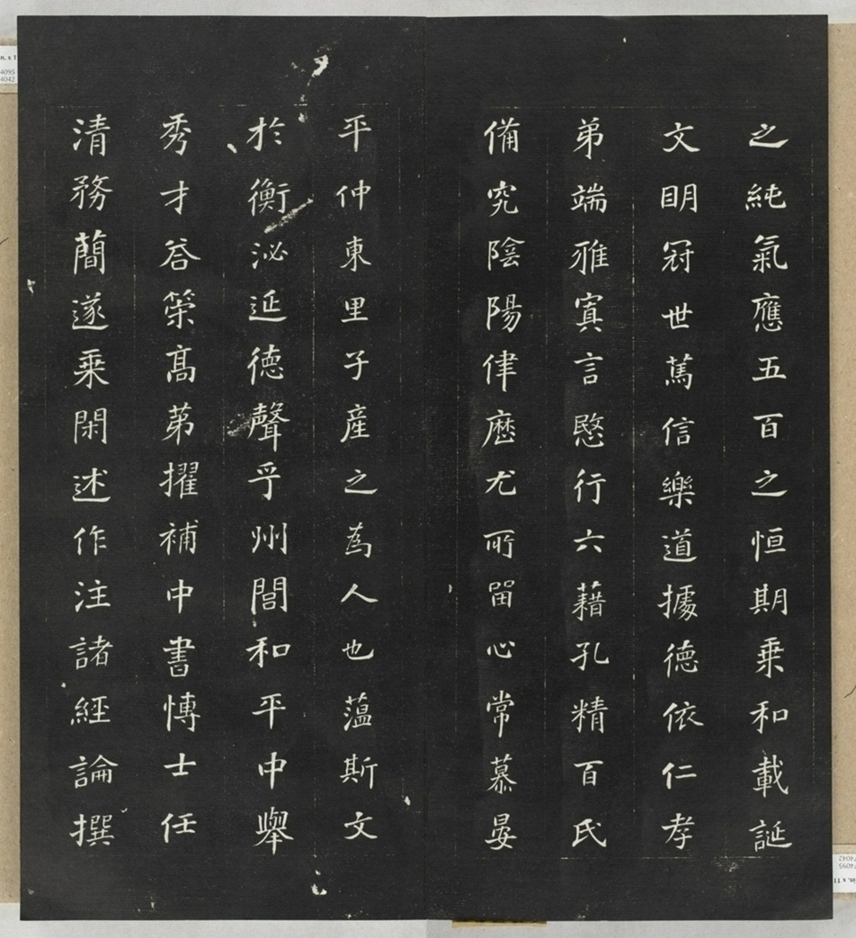 之純氣應五百之恒期乗和載誕
文明冠世篤信樂道據德依仁孝
弟端雅寘言愍行六藉孔精百氏
備究陰陽律曆尤所留心常慕晏
平仲東里子産之為人也薀斯文
於衡泌延德聲乎州閭和平中舉
秀才答策髙第擢補中書博士任
清務蕳遂乗閑述作注諸經論撰